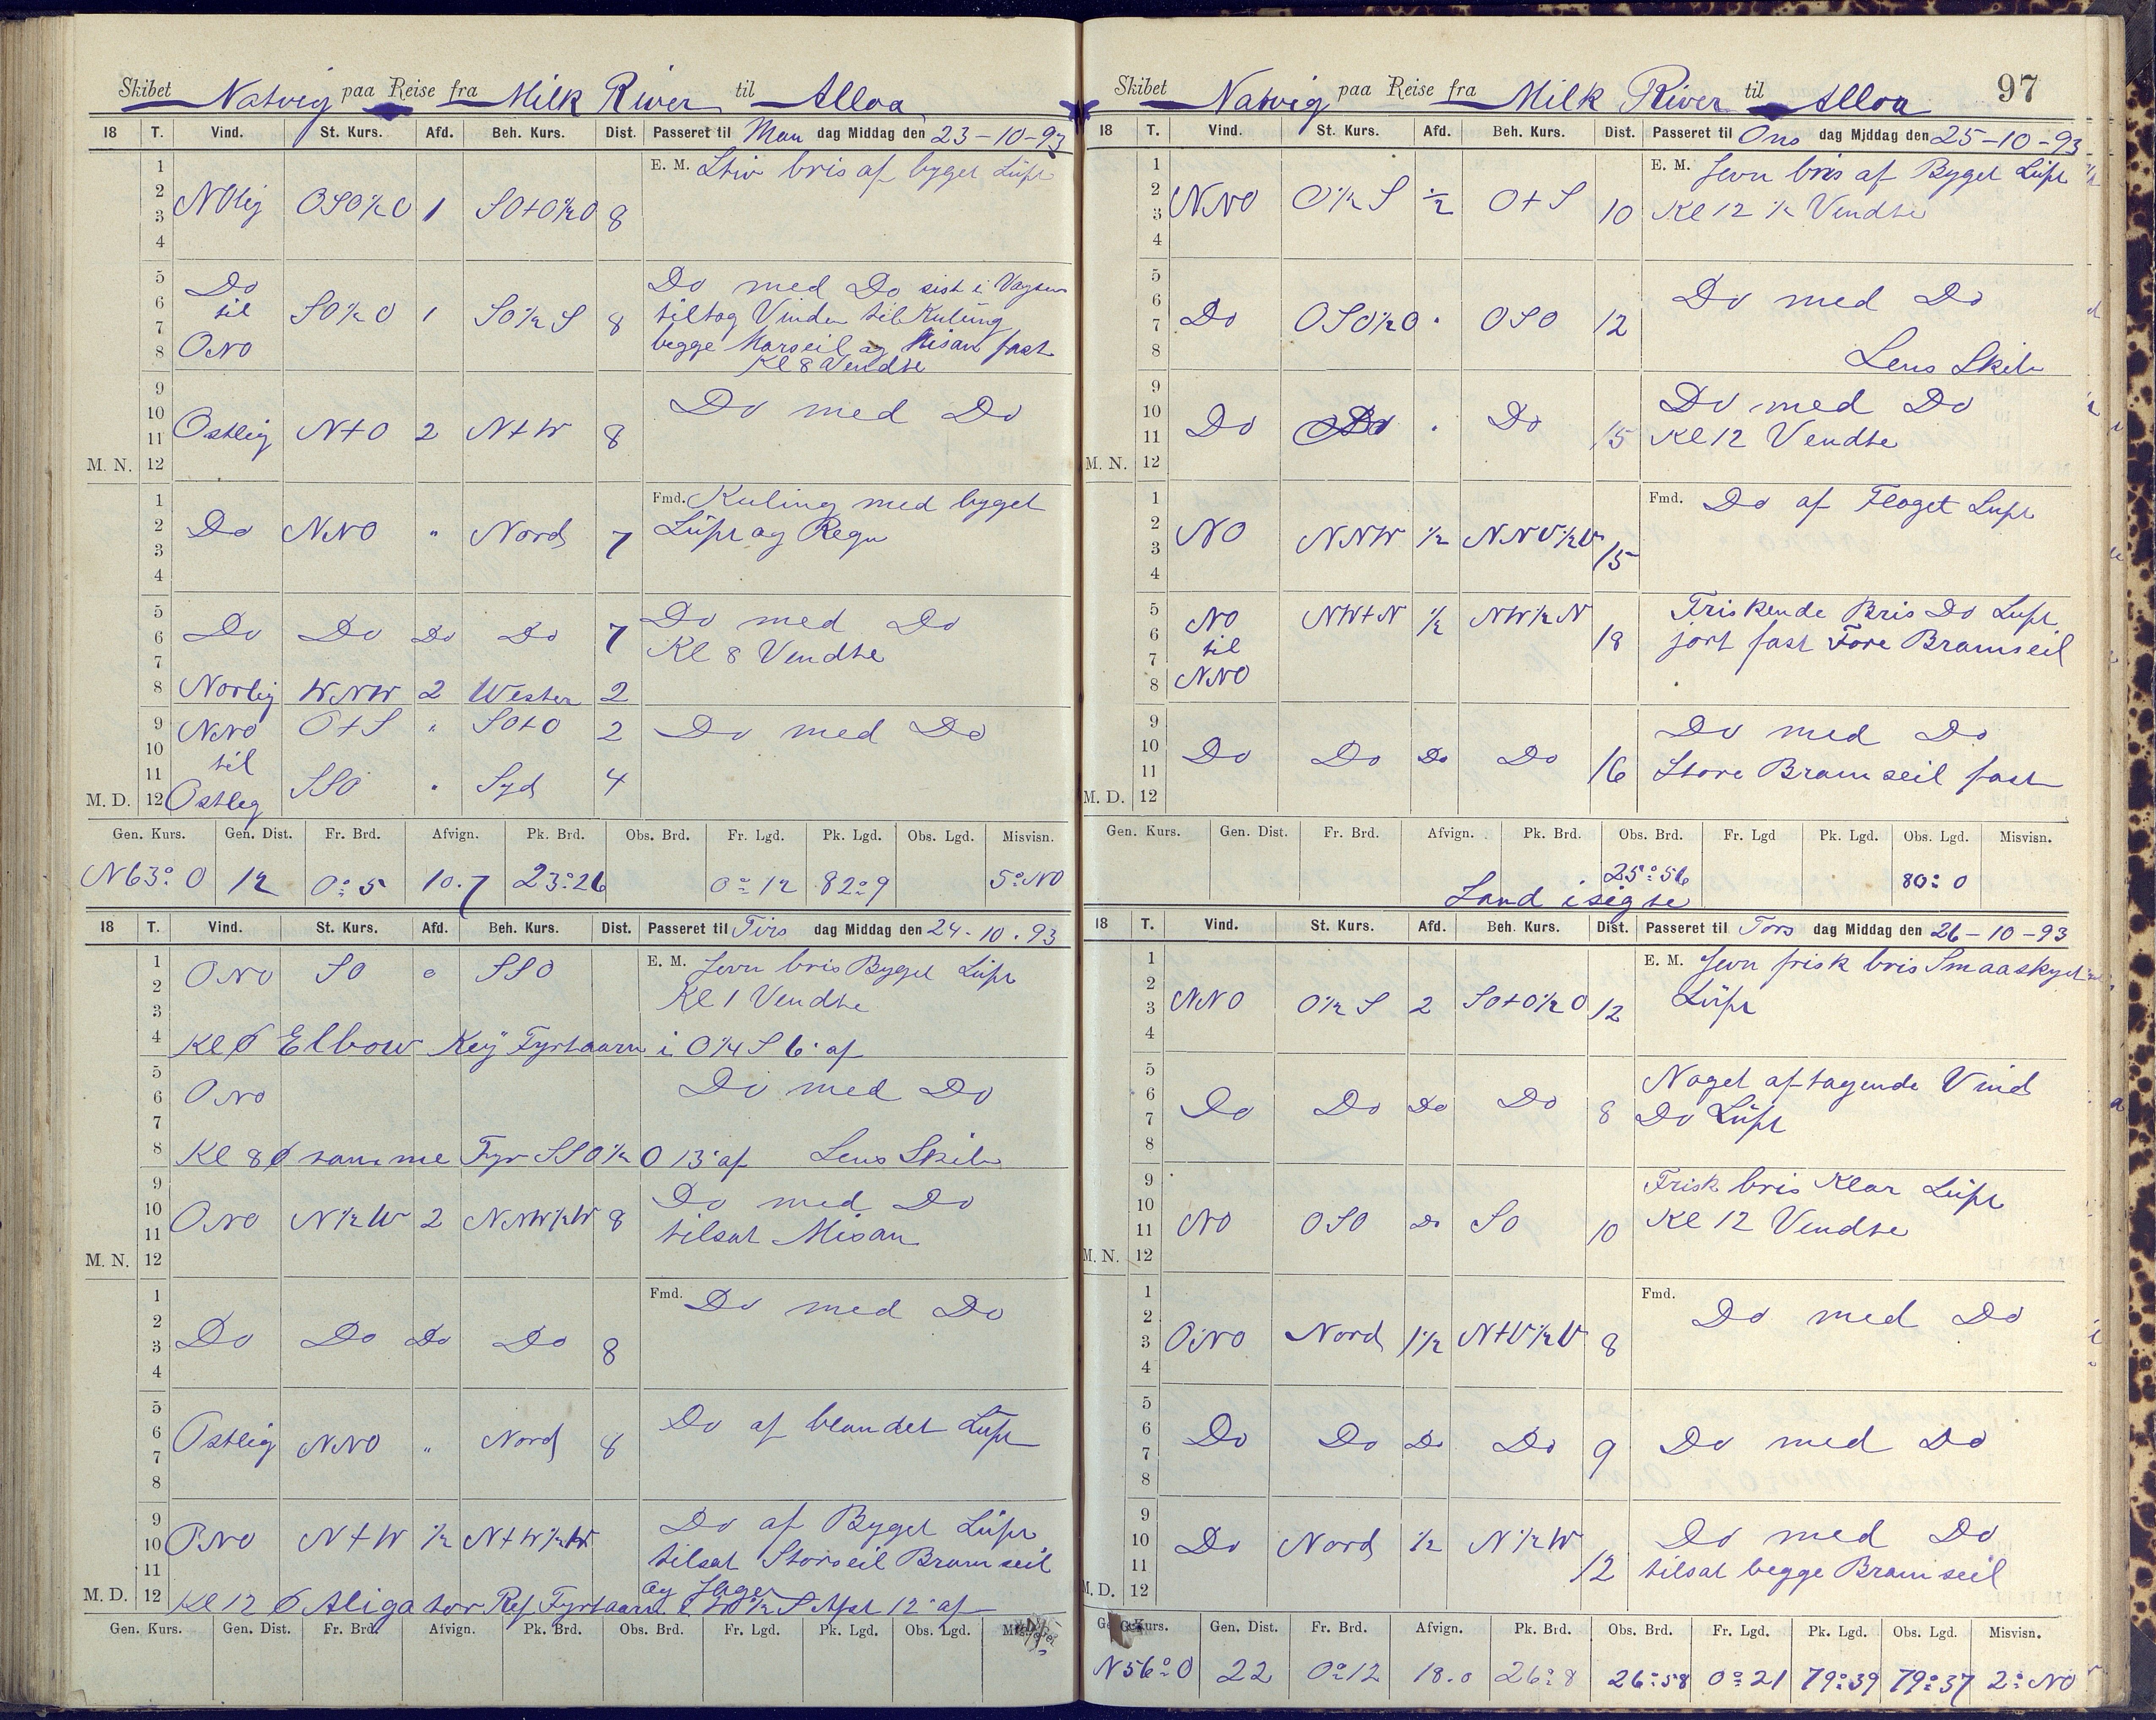 Skibet Natvig paa Reise fra Milk River til Alloa
18 T. Vind. St. Kurs. Afd. Beh. Kurs. Dist. Passeret til Man dag Middag den 23-10-93
1 2 3 4 NOlig OSO½O 1 SO+O½O 8 E. M. Stiv bris af byget Luft
5 6 7 8 Do til ONO SO½O 1 SO½S 8 Do med Do sist i Vagten
tiltog Vinden til Kuling
begge Marseil og Misan fast
Kl 8 Vendte
9 10 11 M. N. 12 Ostlig N+O 2 N+W 8 Do med Do
1 2 3 4 Do NNO " Nord 7 Fmd. Kuling med byget
Luft og Regn
5 6 7 Do Do Do Do 7 Do med Do
Kl 8 Vendte
8 Norlig WNW 2 Westen 2
9 10 NNO til O+S " SO+O 2 Do med Do
11 M. D. 12 Ostleg SSO " Syd 4
Gen. Kurs. Gen. Dist. Fr. Brd. Afvign. Pk. Brd. Obs. Brd. Fr. Lgd. Pk. Lgd. Obs. Lgd. Misvisn.
N63° O 12 0° 5 10.7 23° 26 0° 12 82° 9 5° NO
18 T. Vind. St. Kurs. Afd. Beh. Kurs. Dist. Passeret til Tirs dag Middag den 24-10.93
1 2 3 ONO SO " SSO E. M. Jevn bris Byget Luft
Kl 1 Vendte
4 Kl 6 Elbow Key Fyrtaarn i O¼S 6' af
5 6 7 ONO Do med Do
8 Kl 8 samme Fyr SSO½O 13' af Lens Skib
9 10 11 M. N. 12 ONO N½W 2 NNW½W 8 Do med Do
tilsat Misan
1 2 3 4 Do Do Do Do 8 Fmd. Do med Do
5 6 7 8 Ostlig NNO " Nord 8 Do af blandet Luft
9 10 11 ONO N+W ½ N+W½W Do af Byget Luft
tilsat Storseil Bramseil
og Jager
M. D. 12 Kl 12 Aligator Ref Fyrtaarn 12' af
Gen. Kurs. Gen. Dist. Fr. Brd. Afvign. Pk. Brd. Obs. Brd. Fr. Lgd. Pk. Lgd. Obs. Lgd.
Skibet Natvig paa Reise fra Milk River til Alloa 97
18 T. Vind. St. Kurs. Afd. Beh. Kurs. Dist. Passeret til Ons dag Middag den 25-10-93
1 2 3 4 NNO O½S ½ O+S 10 E. M. Jevn bris af Byget Luft
Kl 12 ½ Vendte
5 6 7 8 Do OSO½O " OSO 12 Do med Do
Lens Skib
9 10 11 M. N. 12 Do Do " Do 15 Do med Do
Kl 12 Vendte
1 2 3 4 NO NNW ½ NNV½V 15 Fmd. Do af Floget Luft
5 6 7 8 NO til NNO NW+N ½ NW½N 18 Friskende Bris Do Luft
jort fast Fore Bramseil
9 10 11 M. D. 12 Do Do Do Do 16 Do med Do
Store Bramseil fast
Gen. Kurs. Gen. Dist. Fr. Brd. Afvign. Pk. Brd. Obs. Brd. Fr. Lgd Pk. Lgd. Obs. Lgd. Misvisn.
25° 56 80° 0
Land i sigte
18 T. Vind. St. Kurs. Afd. Beh. Kurs. Dist. Passeret til Tors dag Middag den 26-10-93
1 2 3 4 NNO O½S 2 SO+O½O 12 E. M. Jevn frisk bris Smaaskyet
Luft
5 6 7 8 Do Do Do Do 8 Noget aftagende Vind
Do Luft
9 10 11 M. N. 12 NO OSO Do SO 10 Frisk bris Klar Luft
Kl 12 Vendte
1 2 3 4 ONO Nord 1½ N+V½V 8 Fmd. Do med Do
5 6 7 8 Do Do Do Do 9 Do med Do
9 10 11 M. D. 12 Do Nord ½ N½W 12 Do med Do
tilsat begge Bramseil
Gen. Kurs. Gen. Dist. Fr. Brd. Afvign. Pk. Brd. Obs. Brd. Fr. Lgd. Pk. Lgd. Obs. Lgd. Misvisn.
N56° O 22 0° 12 18.0 26° 8 26° 58 0° 21 79° 39 79° 37 2° NO